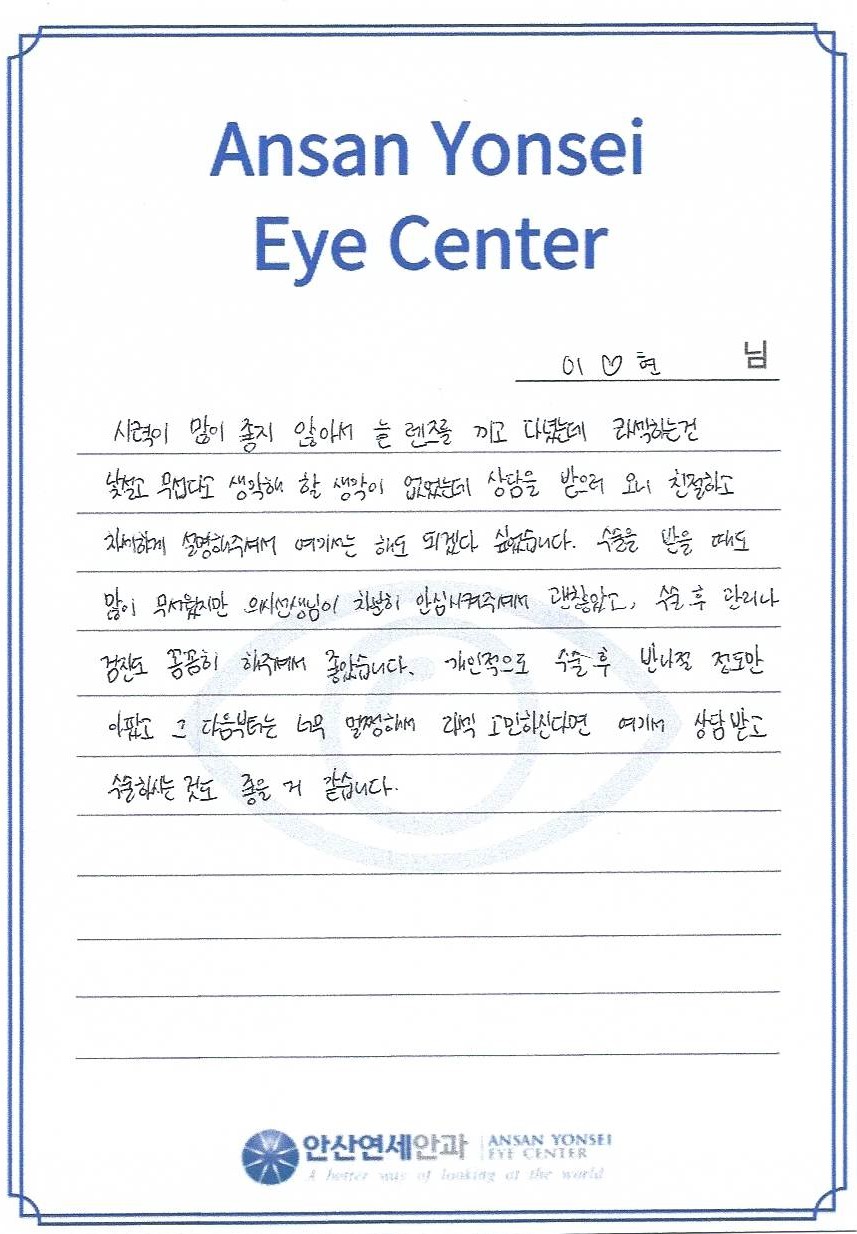 Ansan Yonsei
Eye Center
이 ♡ 현 님
시력이 많이 좋지 않아서 늘 렌즈를 끼고 다녔는데 라섹하는건
낯설고 무섭다고 생각해 할 생각이 없었는데 상담을 받으러 오니 친절하고
자세하게 설명해주셔서 여기서는 해도 되겠다 싶었습니다. 수술을 받을 때도
많이 무서웠지만 의사선생님이 차분히 안심시켜주셔서 괜찮았고, 수술 후 관리나
검진도 꼼꼼히 해주셔서 좋았습니다. 개인적으로 수술 후 반나절 정도만
아팠고 그 다음부터는 너무 멀쩡해서 라섹 고민하신다면 여기서 상담 받고
수술하시는 것도 좋을 거 같습니다.
안산연세안과 ANSAN YONSEI
EYE CENTER
A better way of looking at the world